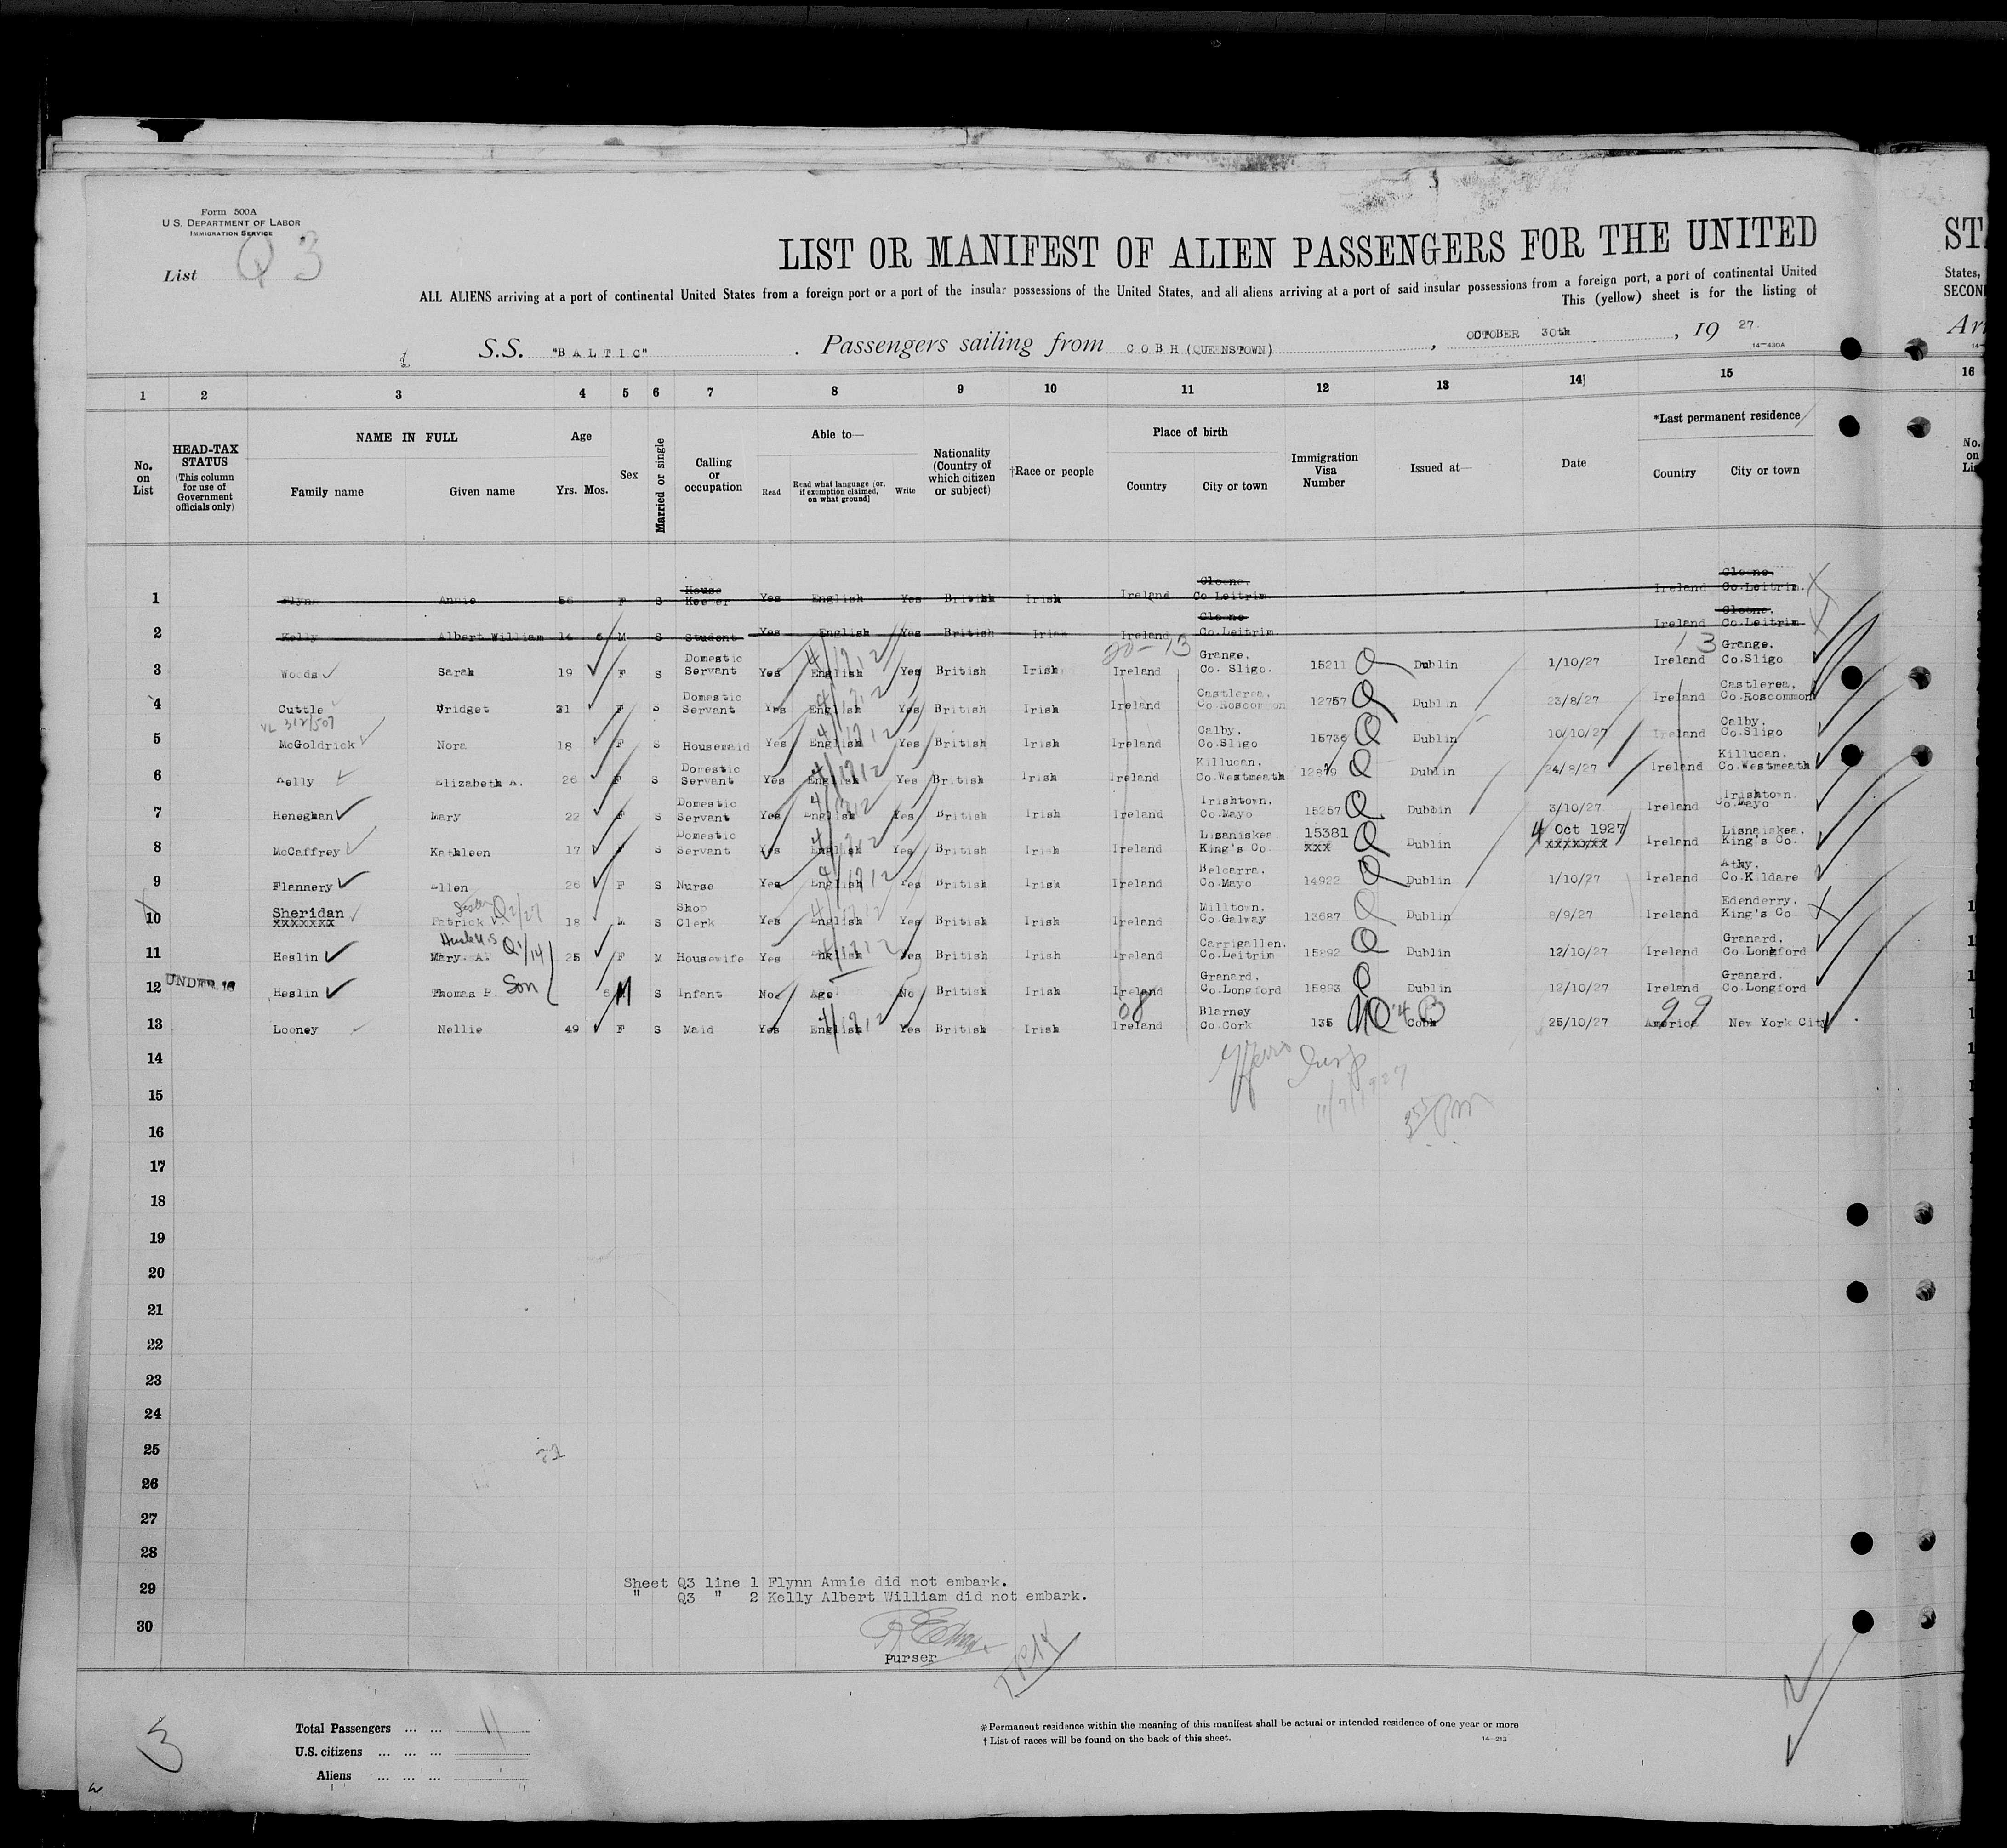 Form 500A
U.S. DEPARTMENT OF LABOR
IMMIGRATION SERVICE
List Q 3
LIST OR MANIFEST OF ALIEN PASSENGERS FOR THE UNITED
ALL ALIENS arriving at a port of continental United States from a foreign port or a port of the insular possessions of the United States, and all aliens arriving at a port of said insular possessions from a foreign port, a port of continental United
This (yellow) sheet is for the listing of
S.S. "BALTIC" . Passengers sailing from COBH (QUEENSTOWN) , OCTOBER 30th , 19 27.
14—430A
1 2 3 4 5 6 7 8 9 10 11 12 13 14 15
No. on List
HEAD-TAX STATUS
(This column for use of Government officials only)
NAME IN FULL
Family name Given name
Age
Yrs. Mos.
Sex
Married or single
Calling or occupation
Able to—
Read Read what language [or, if exemption claimed, on what ground] Write
Nationality (Country of which citizen or subject)
†Race or people
Place of birth
Country City or town
Immigration Visa Number
Issued at—
Date
*Last permanent residence
Country City or town
1 Flynn Annie 56 F S House Keeper Yes English Yes British Irish Ireland Cloone. Co Leitrim Ireland Cloone. Co.Leitrim.
2 Kelly Albert William 14 6 M S Student Yes English Yes British Irish Ireland Cloone Co.Leitrim. Ireland Cloone. Co.Leitrim.
20-13 13
3 Woods Sarah 19 F S Domestic Servant Yes English Yes British Irish Ireland Grange. Co. Sligo. 15211 Q Dublin 1/10/27 Ireland Grange. Co.Sligo
4 Cuttle Bridget 21 F S Domestic Servant Yes English Yes British Irish Ireland Castlerea. Co.Roscommon 12757 Q Dublin 23/8/27 Ireland Castlerea. Co.Roscommon
VL 312/507
5 McGoldrick Nora 18 F S Housemaid Yes English Yes British Irish Ireland Calby. Co.Sligo 15736 Q Dublin 10/10/27 Ireland Calby. Co.Sligo
6 Kelly Elizabeth A. 26 F S Domestic Servant Yes English Yes British Irish Ireland Killucan. Co.Westmeath 12819 Q Dublin 24/8/27 Ireland Killucan. Co.Westmeath
7 Heneghan Mary 22 F S Domestic Servant Yes English Yes British Irish Ireland Irishtown. Co.Mayo 15257 Q Dublin 3/10/27 Ireland Irishtown. Co.Mayo
8 McCaffrey Kathleen 17 F S Domestic Servant Yes English Yes British Irish Ireland Lisaniskea King's Co. 15381 xxx Q Dublin 4 Oct 1927 xxxxxxx Ireland Lisnaiskea. King's Co.
9 Flannery Ellen 26 F S Nurse Yes English Yes British Irish Ireland Belcarra. Co.Mayo 14922 Q Dublin 1/10/27 Ireland Athy. Co.Kildare
10 Sheridan xxxxxxx Patrick V. Q2/27 18 M S Shop Clerk Yes English Yes British Irish Ireland Milltown. Co.Galway 13687 Q Dublin 8/9/27 Ireland Edenderry. King's Co.
11 Heslin Mary A. Q1/14 25 F M Housewife Yes English Yes British Irish Ireland Carrigallen. Co.Leitrim 15892 Q Dublin 12/10/27 Ireland Granard. Co.Longford
12 UNDER 16 Heslin Thomas P. Son 6 M S Infant No Age No British Irish Ireland Granard. Co.Longford 15893 Q Dublin 12/10/27 Ireland Granard. Co.Longford
08 99
13 Looney Nellie 49 F S Maid Yes English Yes British Irish Ireland Blarney Co.Cork 135 NQ 4 B Cobh 25/10/27 America New York City
14
15
16
17
18
19
20
21
22
23
24
25
26
27
28
29
30
Sheet Q3 line 1 Flynn Annie did not embark.
" Q3 " 2 Kelly Albert William did not embark.
Purser
3
Total Passengers ... ... 11
U.S. citizens ... ... ...
Aliens ... ... ...
*Permanent residence within the meaning of this manifest shall be actual or intended residence of one year or more
† List of races will be found on the back of this sheet.
14—213
States,
SECOND
16